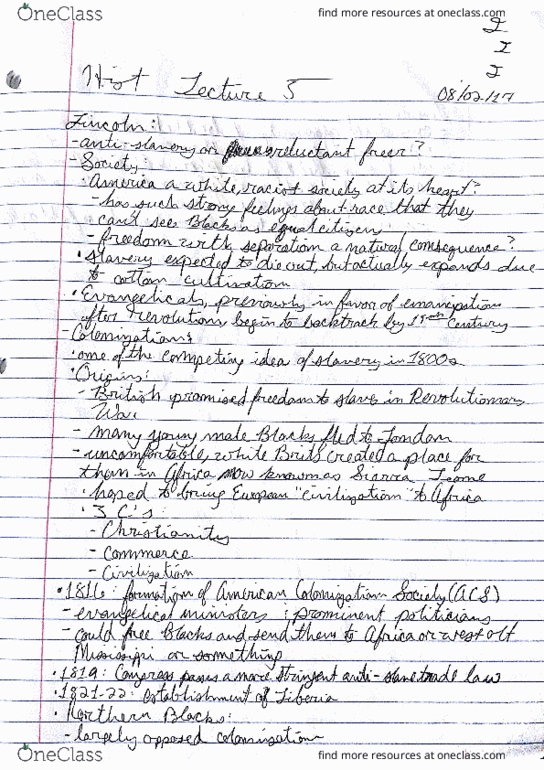 OneClass
find more resources at oneclass.com
I
I
I
Hist Lecture 5
08/02/17
Lincoln:
-anti-slavery or reluctant freer?
-Society:
·America a white, racist society at its heart?
-has such strong feelings about race that they
can't see Blacks as equal citizen
-freedom with separation a natural consequence?
·slavery expected to die out, but actually expands due
to cotton cultivation
·Evangelicals, previously in favor of emancipation
after Revolution, begin to backtrack by 19th century
-Colonization:
·one of the competing idea of slavery in 1800s
·Origins:
-British promised freedom to slaves in Revolutionary
War
-many young male Blacks fled to London
-uncomfortable, white Brits created a place for
them in Africa now known as Sierra Leone
·hoped to bring European "civilization" to Africa
·3 C's:
-Christianity
-commerce
-Civilization
·1816: formation of American Colonization Society (ACS)
-evangelical ministers ; prominent politicians
-could free Blacks and send them to Africa or west of
Mississippi or something
·1819: Congress passes a more stringent anti-slave trade law
·1821-22: establishment of Liberia
·Northern Blacks:
-largely opposed colonization
OneClass
find more resources at oneclass.com